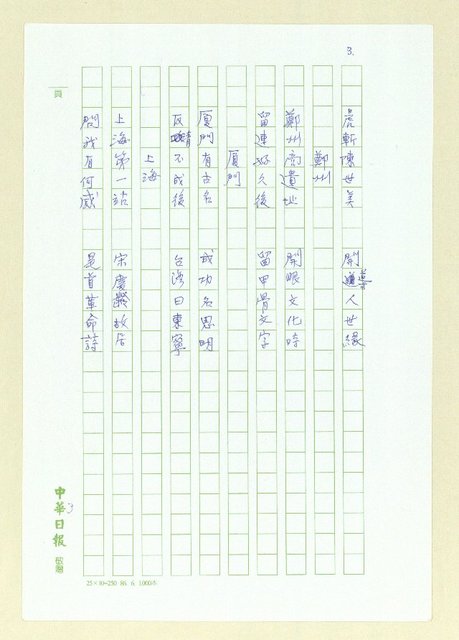 3.
虎斬陳世美　開導人世緣
鄭州
鄭州商遺址　開眼文化時
留連好久後　留甲骨文字
厦門
厦門有古名　成功名思明
反清不成後　台湾曰東寧
上海
上海第一站　宋慶齡故居
問我有何感　是首革命詩
頁
中華日報
25×10=250 86. 6. 1,000本